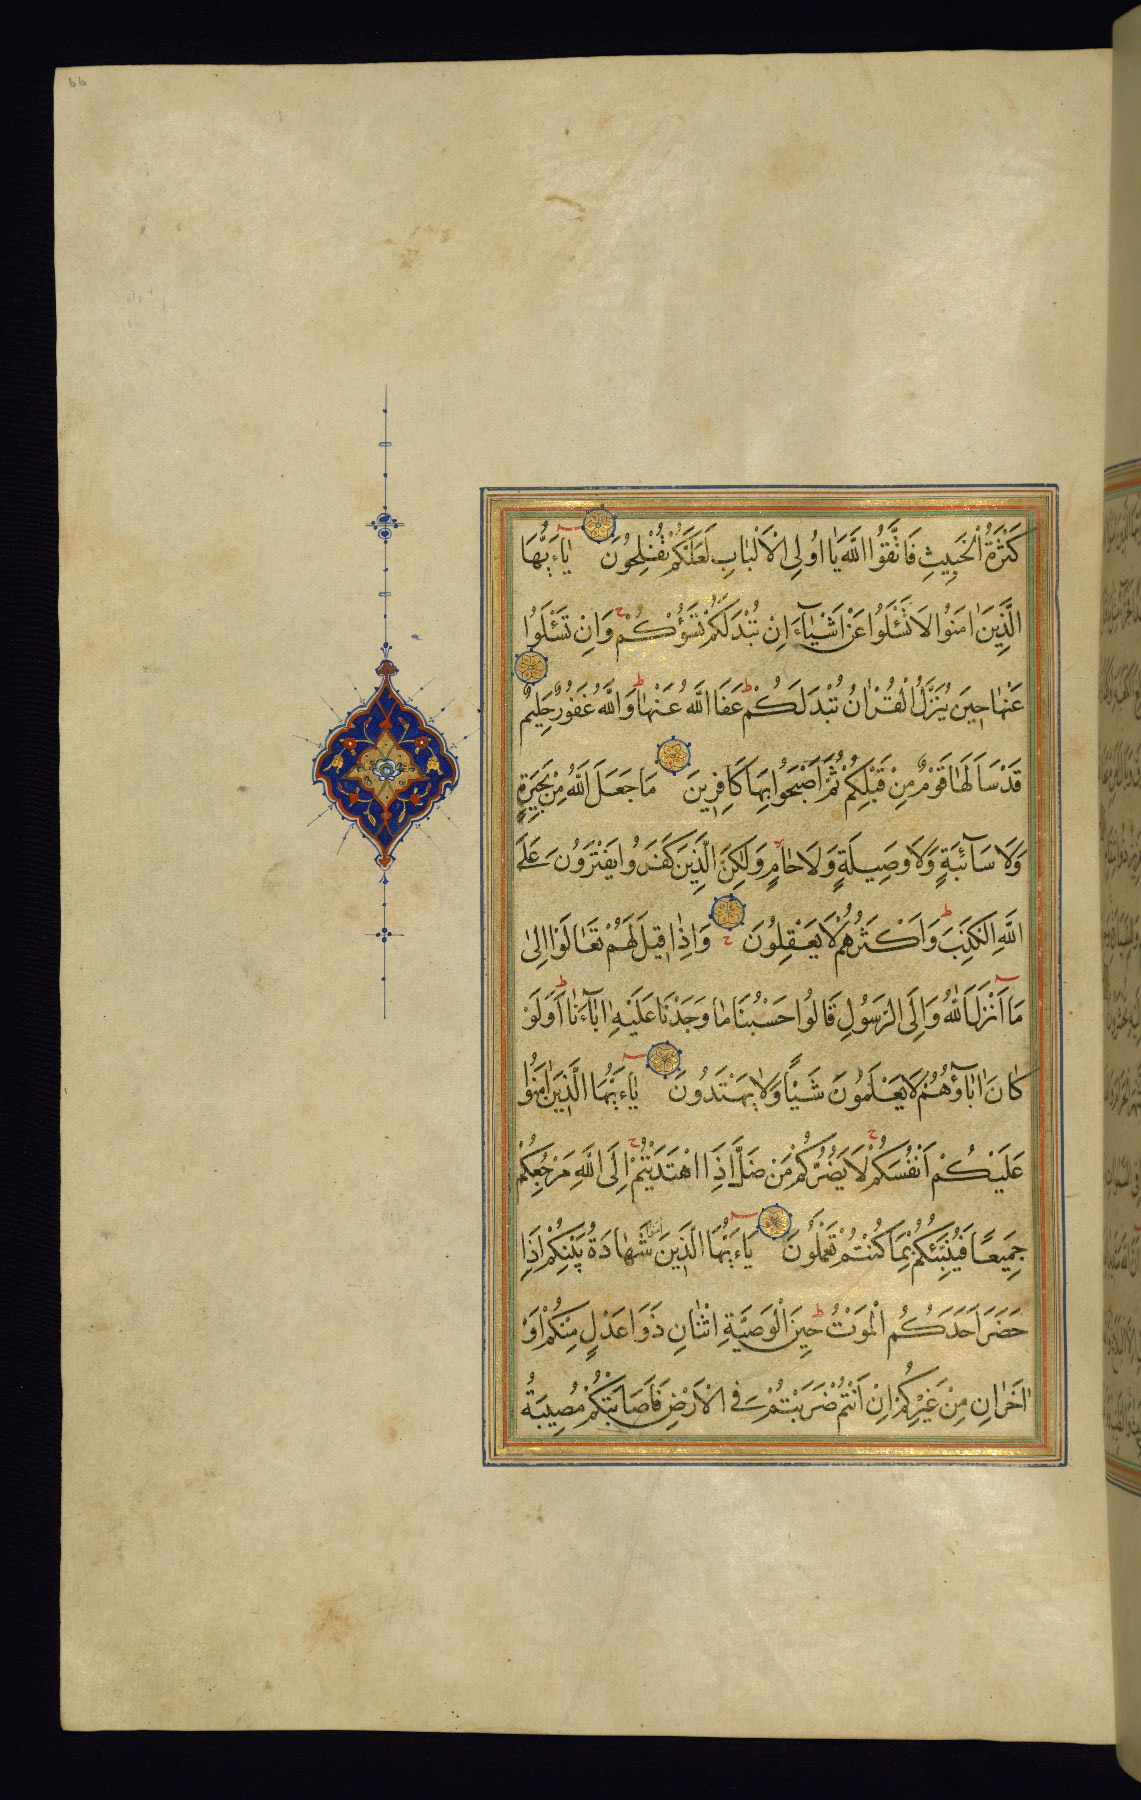 كَثْرَةُ الْخَبِيثِ فَاتَّقُوا اللَّهَ يَا اُولِى الْاَلْبَابِ لَعَلَّكُمْ تُفْلِحُونَ يَاءَيُّهَا
الَّذِينَ اٰمَنُوا لَا تَسْئَلُوا عَنْ اَشْيَآءَ اِنْ تُبْدَ لَكُمْ تَسُؤْكُمْ وَاِنْ تَسْئَلُوا
عَنْهَا حِينَ يُنَزَّلُ الْقُرْاٰنُ تُبْدَ لَكُمْ عَفَا اللَّهُ عَنْهَا وَاللَّهُ غَفُورٌ حَلِيمٌ
قَدْ سَاَلَهَا قَوْمٌ مِنْ قَبْلِكُمْ ثُمَّ اَصْبَحُوا بِهَا كَافِرِينَ مَا جَعَلَ اللَّهُ مِنْ بَحِيرَةٍ
وَلَا سَآئِبَةٍ وَلَا وَصِيلَةٍ وَلَا حَامٍ وَلٰكِنَّ الَّذِينَ كَفَرُوا يَفْتَرُونَ عَلَى
اللَّهِ الْكَذِبَ وَاَكْثَرُهُمْ لَا يَعْقِلُونَ وَاِذَا قِيلَ لَهُمْ تَعَالَوْا اِلٰى
مَا اَنْزَلَ اللَّهُ وَاِلَى الرَّسُولِ قَالُوا حَسْبُنَا مَا وَجَدْنَا عَلَيْهِ اٰبَآءَنَا اَوَلَوْ
كَانَ اٰبَآؤُهُمْ لَا يَعْلَمُونَ شَيْـًٔا وَلَا يَهْتَدُونَ يَاءَيُّهَا الَّذِينَ اٰمَنُوا
عَلَيْكُمْ اَنْفُسَكُمْ لَا يَضُرُّكُمْ مَنْ ضَلَّ اِذَا اهْتَدَيْتُمْ اِلَى اللَّهِ مَرْجِعُكُمْ
جَمِيعًا فَيُنَبِّئُكُمْ بِمَا كُنْتُمْ تَعْمَلُونَ يَاءَيُّهَا الَّذِينَ اٰمَنُوا شَهَادَةُ بَيْنِكُمْ اِذَا
حَضَرَ اَحَدَكُمُ الْمَوْتُ حِينَ الْوَصِيَّةِ اثْنَانِ ذَوَا عَدْلٍ مِنْكُمْ اَوْ
اٰخَرَانِ مِنْ غَيْرِكُمْ اِنْ اَنْتُمْ ضَرَبْتُمْ فِى الْاَرْضِ فَاَصَابَتْكُمْ مُصِيبَةُ